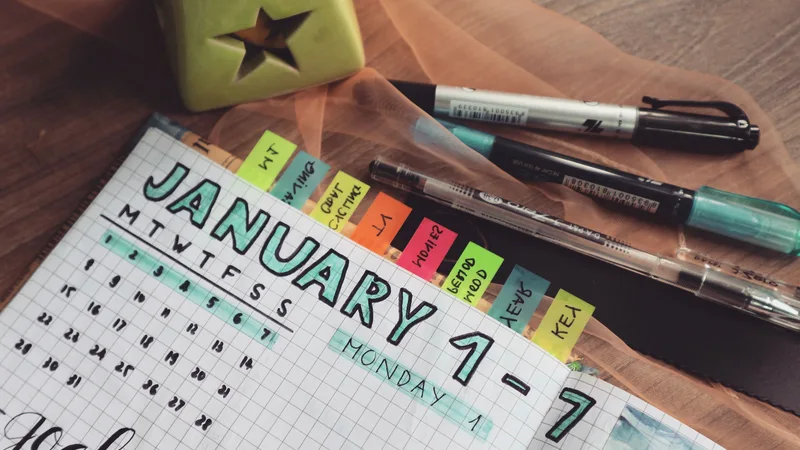 TV
MOVIES
PERIOD
MOOD
YEAR
KEY
JANUARY 1-7
M T W T F S S
1 2 3 4 5 6 7
8 9 10 11 12 13 14
15 16 17 18 19 20 21
22 23 24 25 26 27 28
29 30 31
MONDAY 1